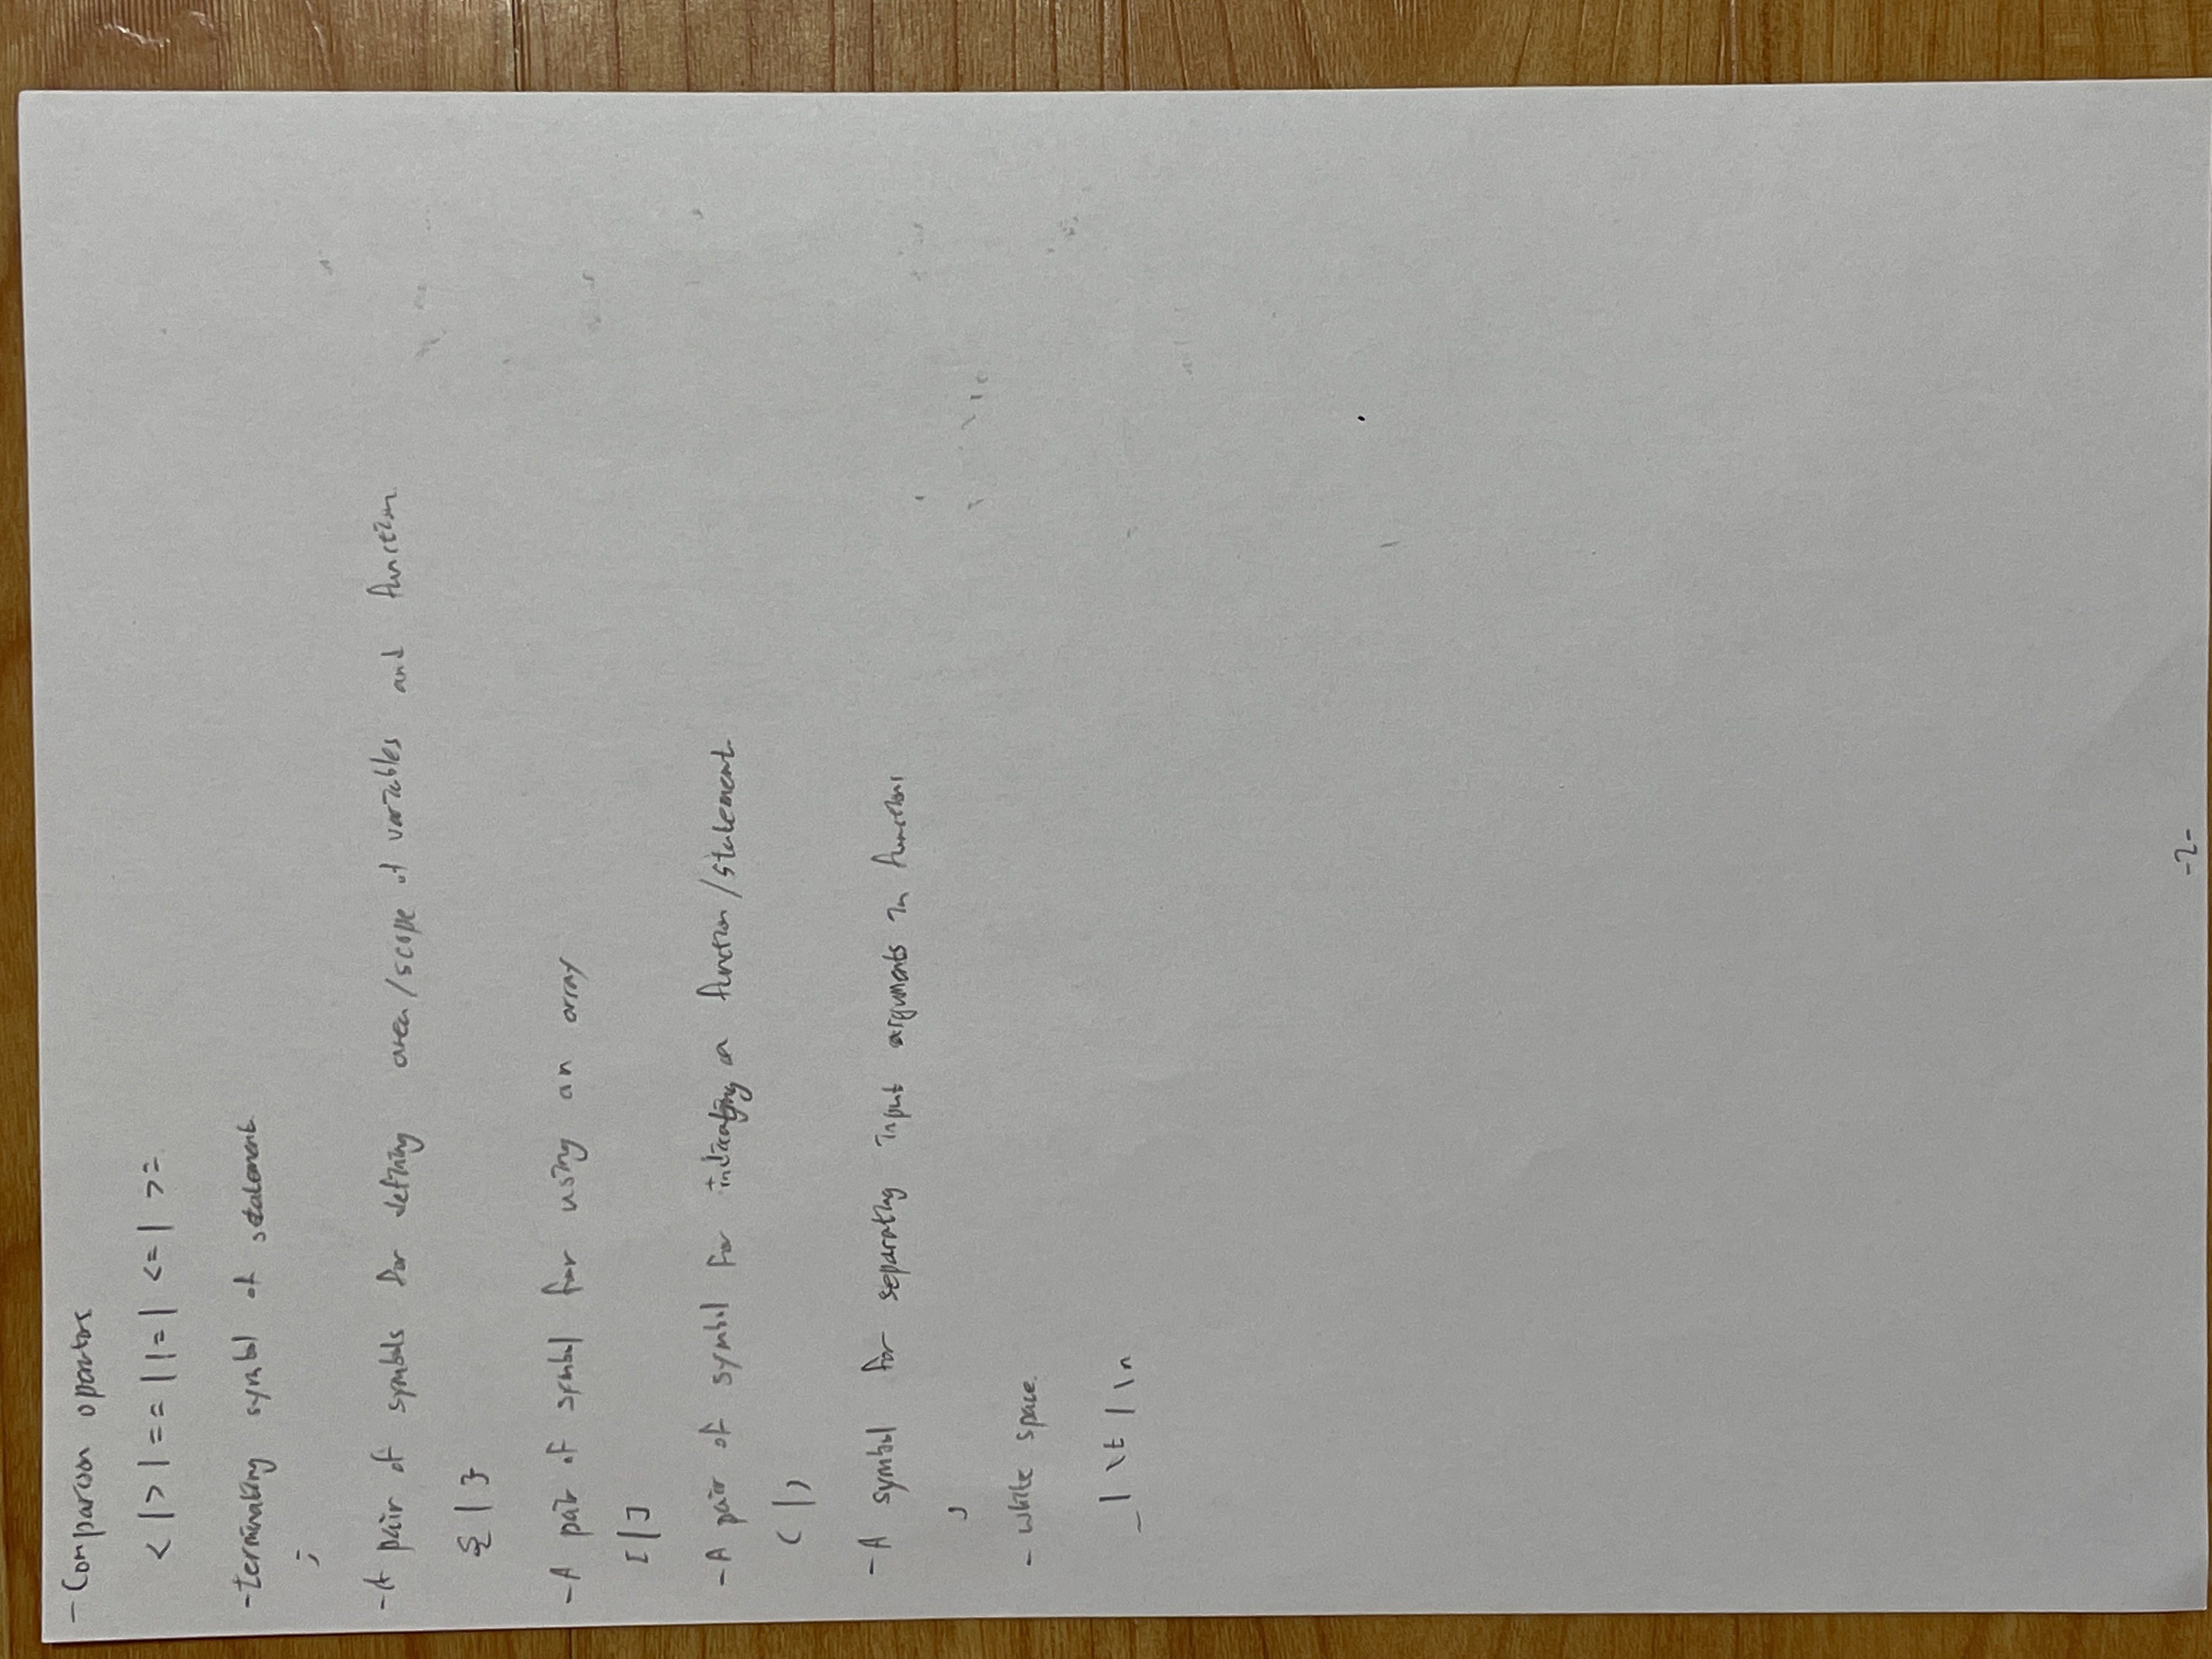 - Comparison operators
< | > | == | != | <= | >=
- terminating symbol of statement
;
- A pair of symbols for defining area/scope of variables and function
{ | }
- A pair of symbol for using an array
[ | ]
- A pair of symbol for indicating a function/statement
( | )
- A symbol for separating input arguments in functions
,
- white space.
_ | \t | \n
-2-